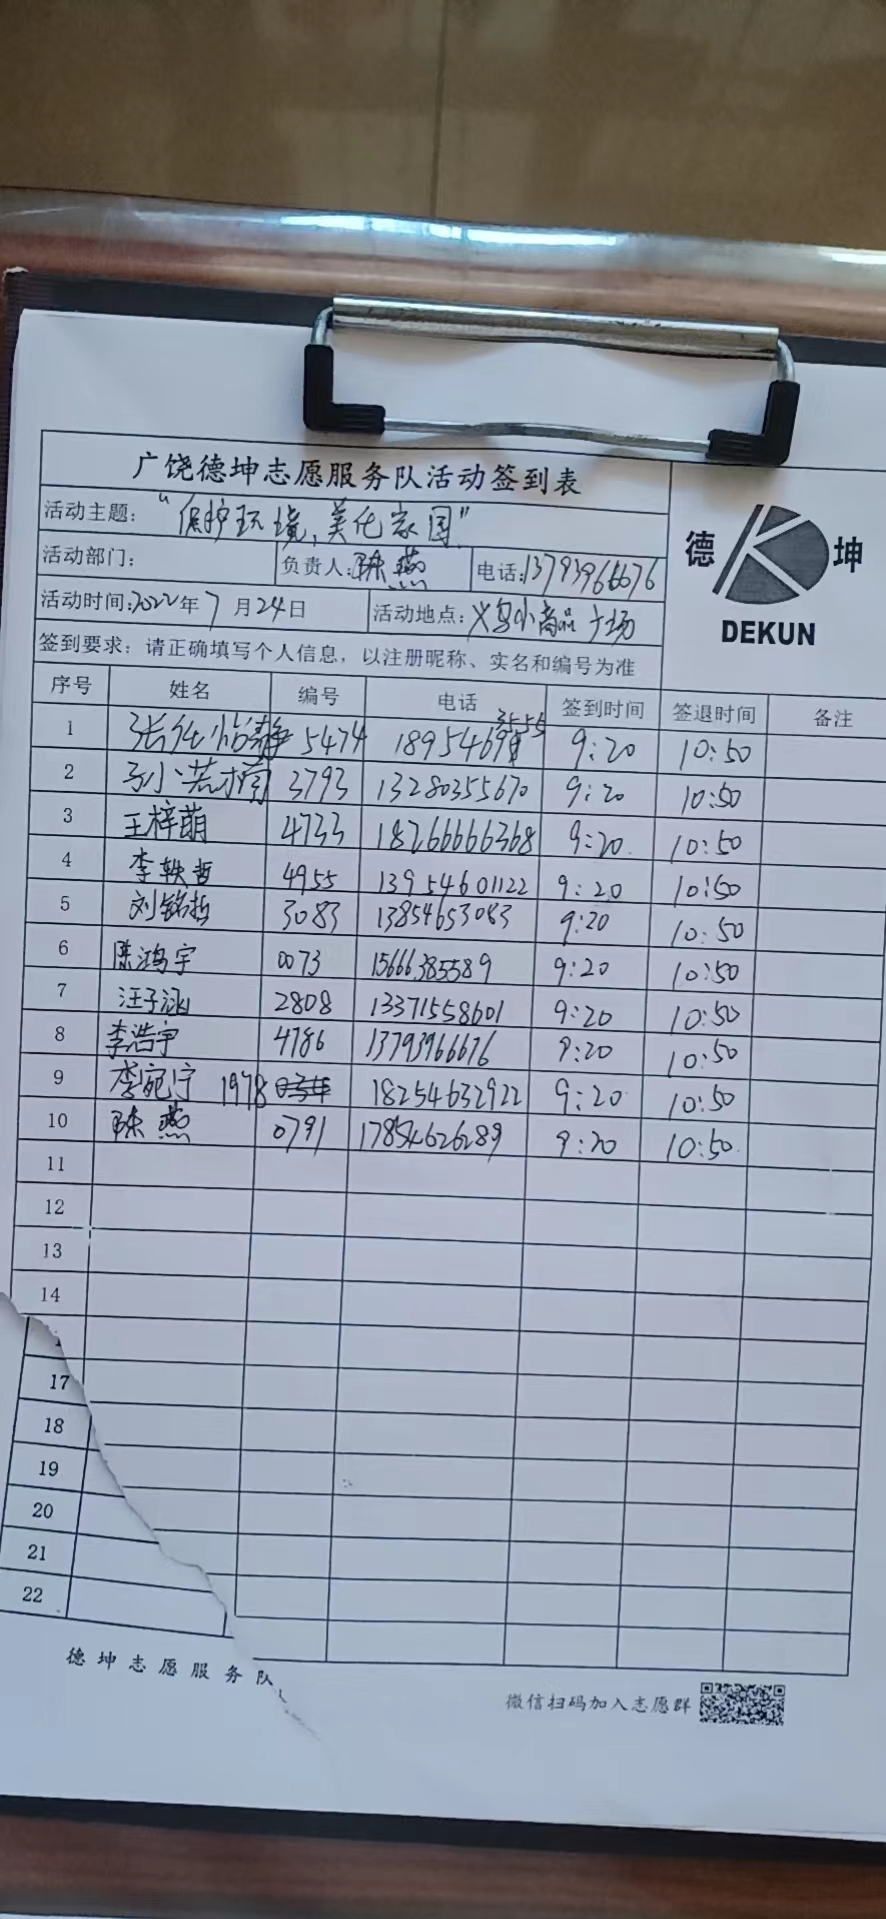 广饶德坤志愿服务队活动签到表
德 坤
DEKUN
活动主题：“保护环境，美化家园”
活动部门： 负责人：陈燕 电话：13793966676
活动时间：2022年7月24日 活动地点：义乌小商品广场
签到要求：请正确填写个人信息，以注册昵称、实名和编号为准
序号 姓名 编号 电话 签到时间 签退时间 备注
1 张任怡静 5474 1895469 3555 9:20 10:50
2 3793 13280355670 9:20 10:50
3 王梓萌 4733 18266666368 9:20 10:50
4 李轶哲 4955 13954601122 9:20 10:50
5 刘铭哲 3083 13854653083 9:20 10:50
6 陈鸿宇 0073 15666385589 9:20 10:50
7 汪子涵 2808 13371558601 9:20 10:50
8 李浩宇 4786 13793966676 9:20 10:50
9 李宛宁 1978 18254632922 9:20 10:50
10 陈燕 0791 17854626289 9:20 10:50
11
12
13
14
17
18
19
20
21
22
德坤志愿服务队
微信扫码加入志愿群